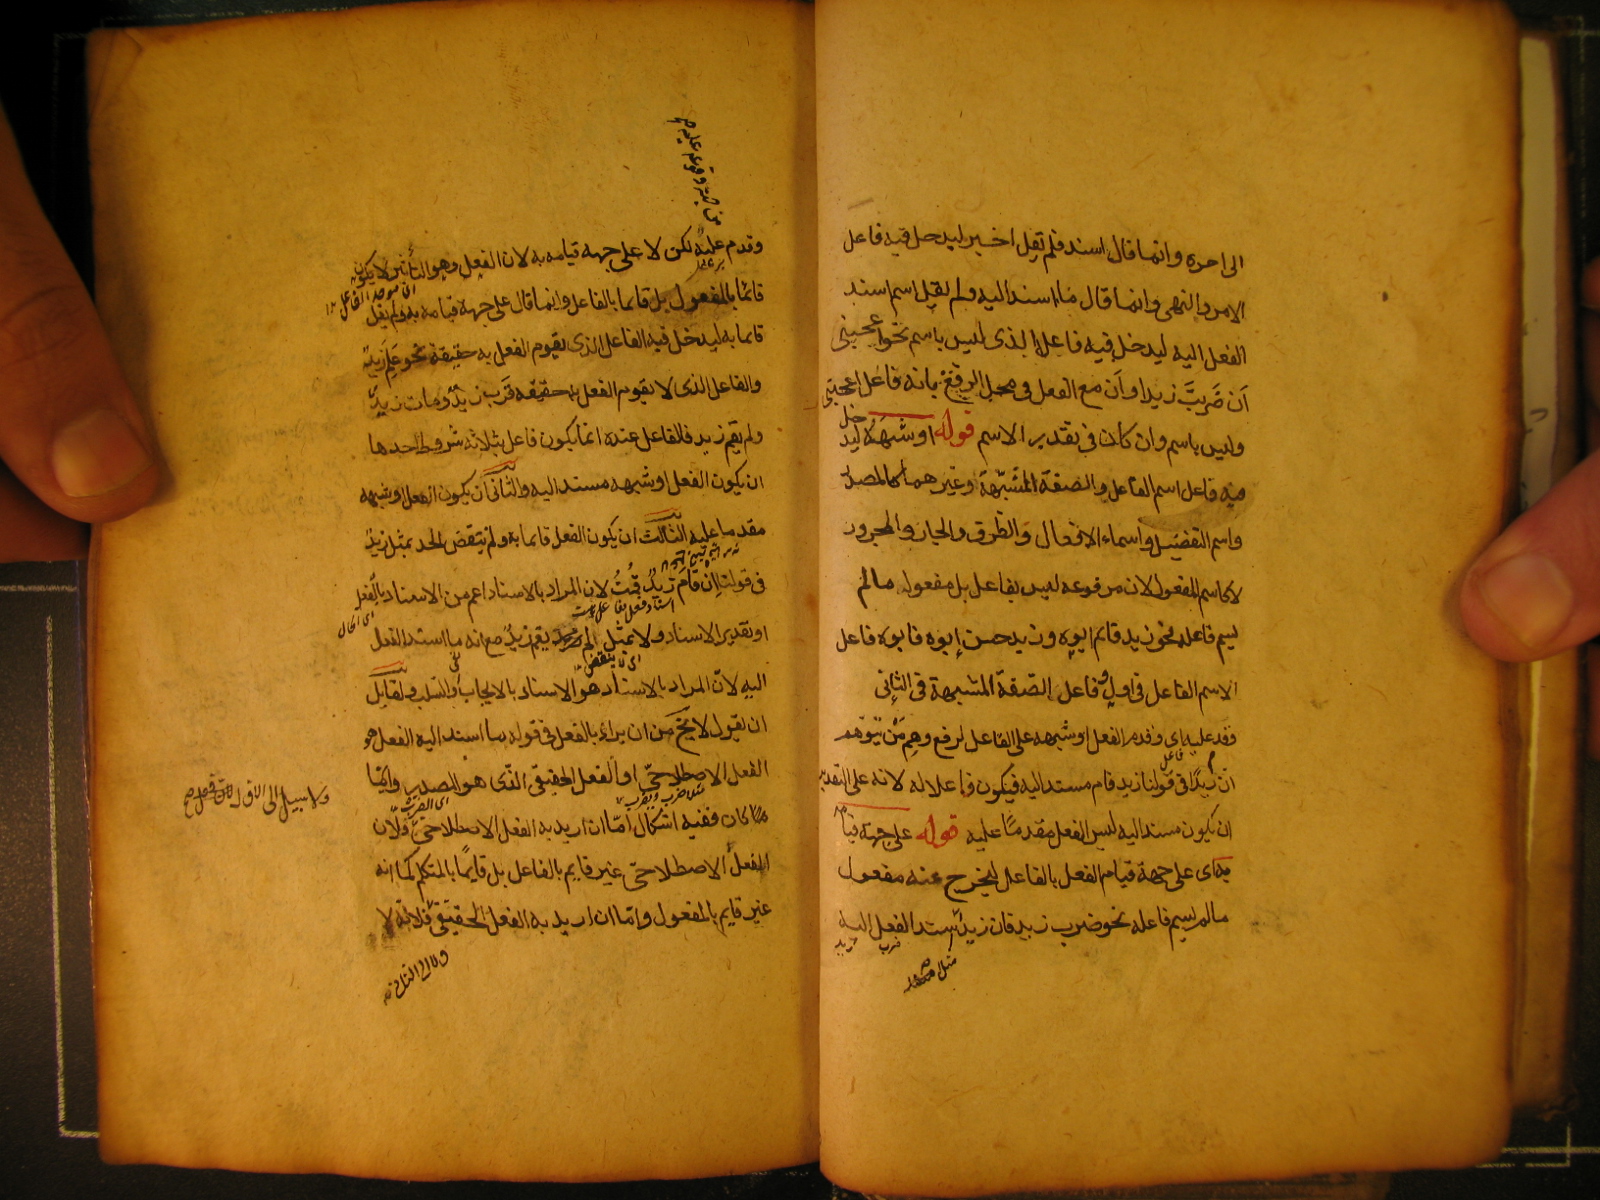 الى اخره وانما قال اسند فلم يقل اخبر ليدخل فيه فاعل
الامر والنهى وانما قال ما اسند اليه ولم يقل اسم اسند
الفعل اليه ليدخل فيه فاعل الذى ليس باسم نحو اعجبنى
اَن ضَربتَ زيدا واَن مع الفعل فى محل الرفع بانه فاعل اعجبنى
وليس باسم وان كان فى تقدير الاسم قوله او شبهه ليدخل
فيه فاعل اسم الفاعل والصفة المشبهة وغيرهما كالمصدر
واسم التفضيل واسماء الافعال والظرف والجار والمجرور
لا كاسم المفعول لان مرفوعه ليس بفاعل بل مفعوله مالم
يسم فاعله نحو زيد قائم ابوه وزيد حسن ابوه فابوه فاعل
الاسم الفاعل فى اول وفاعل الصفة المشبهة فى الثانى
وقد عليه اى وقدم الفعل او شبهه على الفاعل لرفع وهم من يتوهم
ان زيدا فى قولنا زيد قام مسند اليه فيكون فاعلا له لانه على التقدير
فاعل
ان يكون مسند اليه ليس الفعل مقدما عليه قوله على جهة قيامه
به اى على جهة قيام الفعل بالفاعل ليخرج عنه مفعول
مالم يسم فاعله نحو ضرب زيد فان زيد اسند الفعل اليه
ضرب زيد
من جهة وقوعه عليه
وقدم عليه لكن لا على جهة قيامه به لان الفعل وهو التأثير لا يكون
قائما بالمفعول بل قايما بالفاعل وانما قال على جهة قيامه به ولم يقل
قائما به ليدخل فيه الفاعل الذى يقوم الفعل به حقيقة نحو علم زيد
والفاعل الذى لا يقوم الفعل به حقيقة قرب زيد ومات زيد
ولم يقم زيد فالفاعل عنده انما يكون فاعل بثلاثة شروط احدها
ان يكون الفعل او شبهه مسند اليه والثانى ان يكون الفعل او شبهه
مقدما عليه الثالث ان يكون الفعل قايما به ولم ينتقض الحد بمثل زيد
فى قولنا ان قام زيد قمت لان المراد بالاسناد اعم من الاسناد بالفعل
او بتقدير الاسناد ولا بمثل لم يقم زيد مع انه ما اسند الفعل
اليه لان المراد بالاسناد هو الاسناد بالايجاب او السلب ولقايل
ان يقول لا يخ من ان يراد بالفعل فى قوله ما اسند اليه الفعل هو
الفعل الاصطلاحى او الفعل الحقيقى الذى هو المصدر وايما
مثل ضرب ويضرب
اى الضرب
كان ففيه اشكال اما ان اريد به الفعل الاصطلاحى فلان
الفعل الاصطلاحى غير قايم بالفاعل بل قايما بالمتكلم كما انه
غير قايم بالمفعول واما ان اريد به الفعل الحقيقى فلانه لا
ولا سبيل الى الاول
ولا الى الثانى